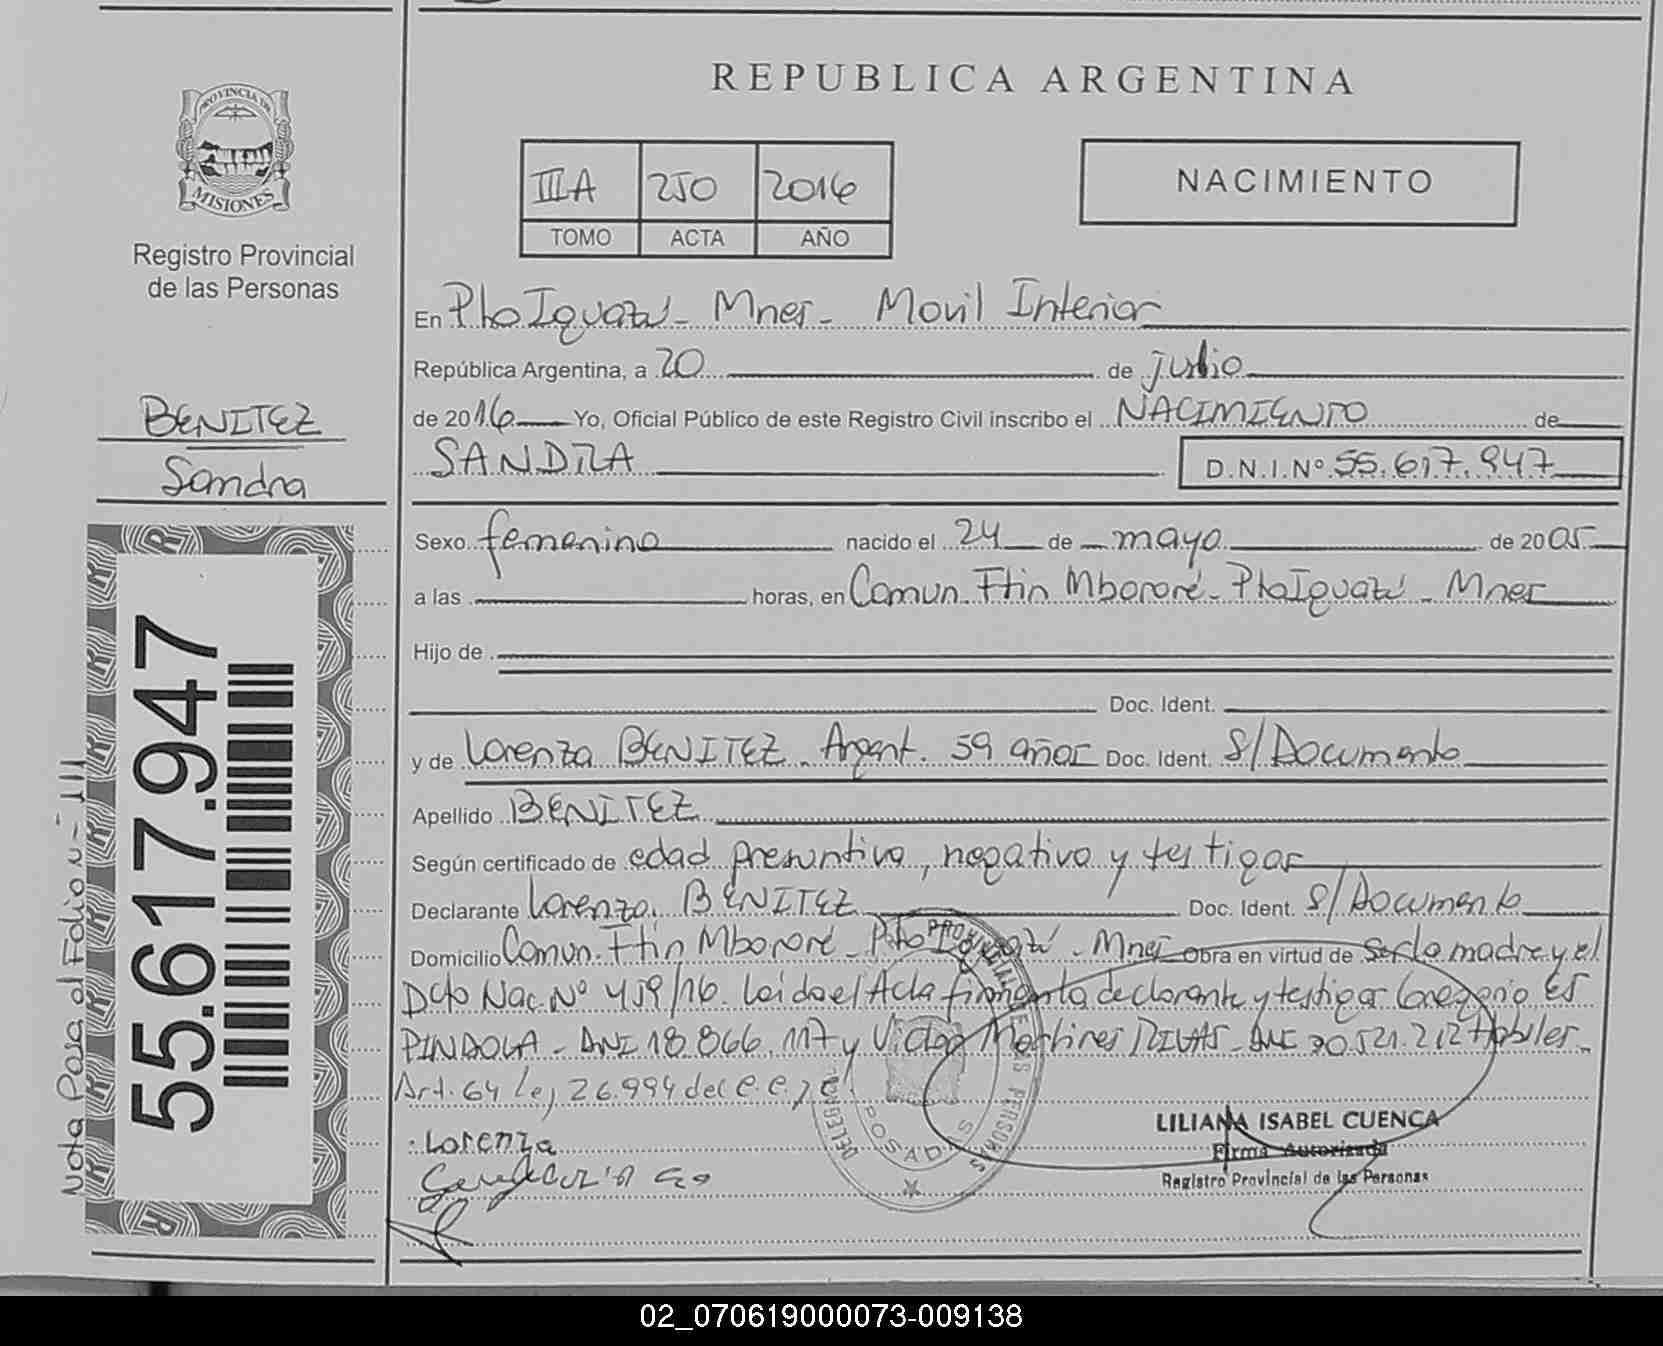 REPUBLICA ARGENTINA
PROVINCIA DE
MISIONES
Registro Provincial
de las Personas
IIIA 250 2016
TOMO ACTA AÑO
NACIMIENTO
En Pto Iguazú - Mnes - Movil Interior
República Argentina, a 20 de julio
de 2016 Yo, Oficial Público de este Registro Civil inscribo el NACIMIENTO de
SANDRA D.N.I.Nº 55.617.947
BENITEZ
Sandra
Sexo femenino nacido el 24 de mayo de 2005
a las horas, en Comun. Ftin Mbororé - Pto Iguazú - Mnes
Hijo de
Doc. Ident.
y de Lorenza BENITEZ - Argent. 59 años Doc. Ident. S/Documento
Apellido BENITEZ
Según certificado de edad presuntiva, negativa y testigos
Declarante Lorenza BENITEZ Doc. Ident. S/Documento
Domicilio Comun. Ftin Mbororé - Pto Iguazú - Mnes Obra en virtud de ser la madre y el
Dcto Nac. Nº 459/16. Leida el Acta firman la declarante y testigos Gregorio ES
PINDOLA - DNI 18.866.117 y Victor Martines RIVAS - DNI 30.521.212 Habiles.
Art. 64 Ley 26.994 del C.C. y C.
Lorenza
LILIANA ISABEL CUENCA
Firma Autorizada
Registro Provincial de las Personas
POSADAS
55.617.947
Nota Pasa al Folio Nº 111
02_070619000073-009138